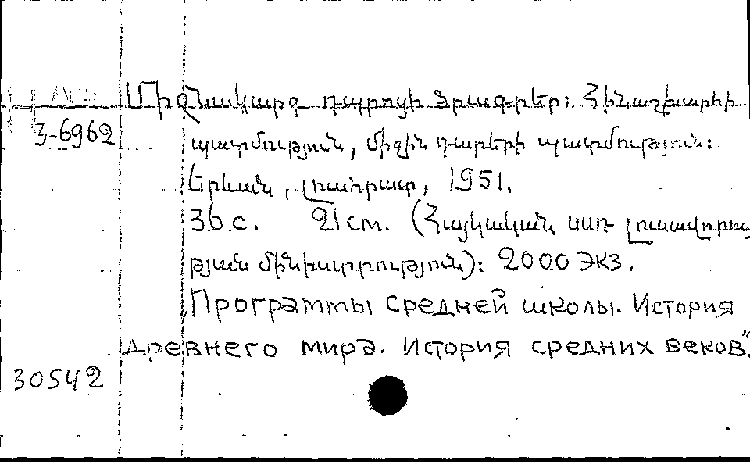 Միջնակարգ դպրոցի ծրագրեր: Հին աշխարհի
3-6962
պատմություն, միջին դարերի պատմություն:
Երևան, լուսհրատ, 1951.
36 с. 21 см. (Հայկական ՍՍՌ լուսավորու
թյան մինիստրություն): 2000 экз.
Программы средней школы. История
древнего мира. История средних веков".
30542